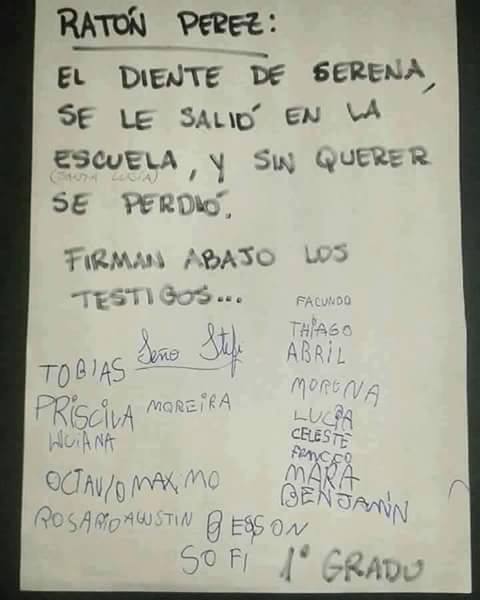 RATÓN PEREZ:
EL DIENTE DE SERENA,
SE LE SALIÓ EN LA
ESCUELA, Y SIN QUERER
(SANTA LUCÍA)
SE PERDIÓ.
FIRMAN ABAJO LOS
TESTIGOS...
FACUNDO
Seño Stefi
THIAGO
TOBIAS
ABRIL
MORENA
PRISCILA MOREIRA
LUCIA
LUCIANA
CELESTE
FRANCO
OCTAVIO MAXIMO
MARA
BENJAMÍN
ROSARIO AGUSTIN
SOFI
1° GRADO